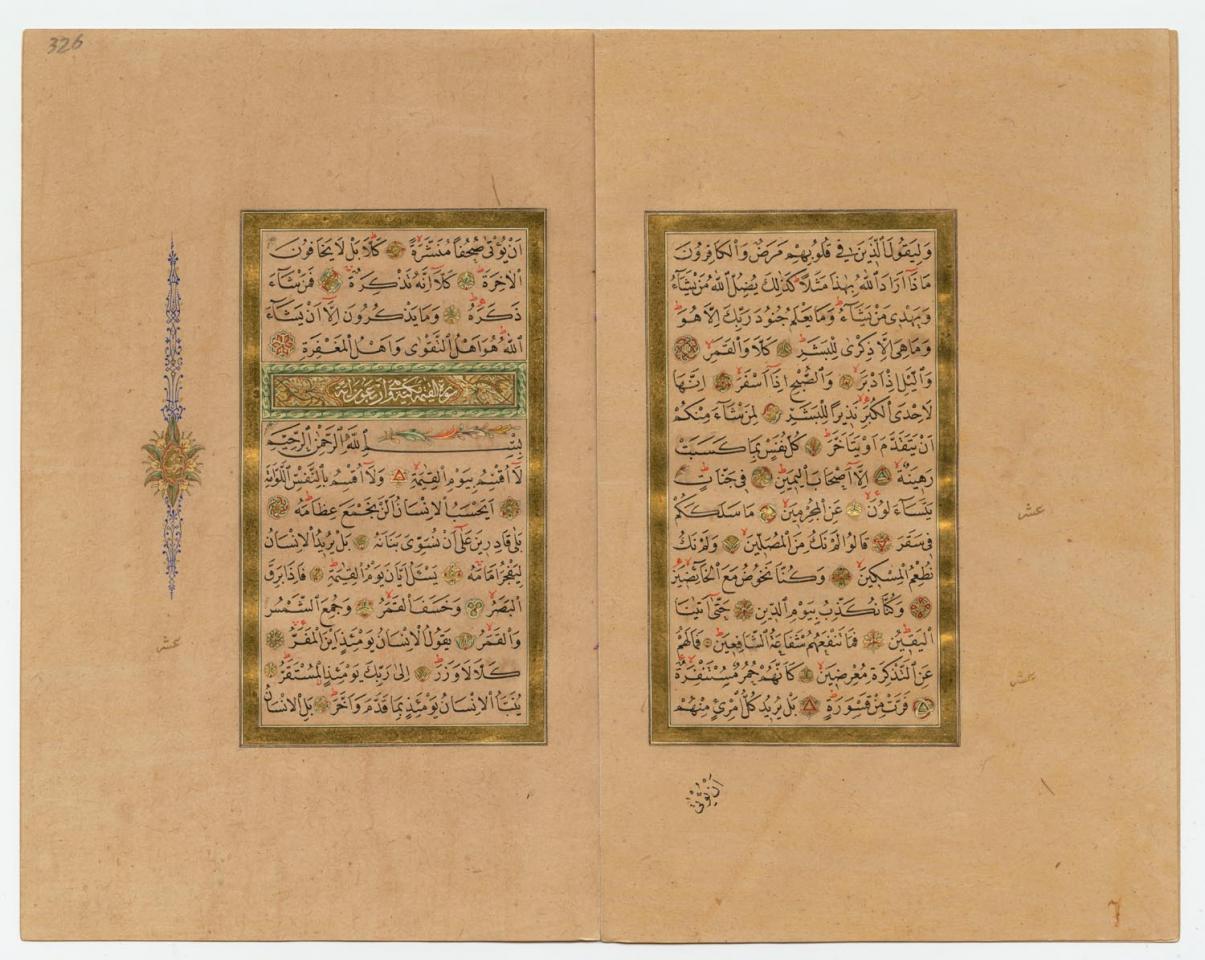 وَلِيَقُولَ الَّذِينَ فِي قُلُوبِهِمْ مَرَضٌ وَالْكَافِرُونَ
مَاذَا أَرَادَ اللهُ بِهٰذَا مَثَلًا كَذٰلِكَ يُضِلُّ اللهُ مَنْ يَشَاءُ
وَيَهْدِي مَنْ يَشَاءُ وَمَا يَعْلَمُ جُنُودَ رَبِّكَ اِلَّا هُوَ
وَمَا هِيَ اِلَّا ذِكْرٰى لِلْبَشَرِ كَلَّا وَالْقَمَرِ
وَالَّيْلِ اِذْ اَدْبَرَ وَالصُّبْحِ اِذَا اَسْفَرَ اِنَّهَا
لَاِحْدَى الْكُبَرِ نَذِيرًا لِلْبَشَرِ لِمَنْ شَاءَ مِنْكُمْ
اَنْ يَتَقَدَّمَ اَوْ يَتَاَخَّرَ كُلُّ نَفْسٍ بِمَا كَسَبَتْ
رَهِينَةٌ اِلَّا اَصْحَابَ الْيَمِينِ فِي جَنَّاتٍ
يَتَسَاءَلُونَ عَنِ الْمُجْرِمِينَ مَا سَلَكَكُمْ
فِي سَقَرَ قَالُوا لَمْ نَكُ مِنَ الْمُصَلِّينَ وَلَمْ نَكُ
نُطْعِمُ الْمِسْكِينَ وَكُنَّا نَخُوضُ مَعَ الْخَائِضِينَ
وَكُنَّا نُكَذِّبُ بِيَوْمِ الدِّينِ حَتّٰى اَتٰينَا
الْيَقِينُ فَمَا تَنْفَعُهُمْ شَفَاعَةُ الشَّافِعِينَ فَمَا لَهُمْ
عَنِ التَّذْكِرَةِ مُعْرِضِينَ كَاَنَّهُمْ حُمُرٌ مُسْتَنْفِرَةٌ
فَرَّتْ مِنْ قَسْوَرَةٍ بَلْ يُرِيدُ كُلُّ امْرِئٍ مِنْهُمْ
اَنْ يُؤْتٰى
عشر
عشر
اَنْ يُؤْتٰى صُحُفًا مُنَشَّرَةً كَلَّا بَلْ لَا يَخَافُونَ
الْاٰخِرَةَ كَلَّا اِنَّهُ تَذْكِرَةٌ فَمَنْ شَاءَ
ذَكَرَهُ وَمَا يَذْكُرُونَ اِلَّا اَنْ يَشَاءَ
اللهُ هُوَ اَهْلُ التَّقْوٰى وَاَهْلُ الْمَغْفِرَةِ
سورة القيمة مكية وهي اربعون اية
بِسْمِ اللهِ الرَّحْمٰنِ الرَّحِيمِ
لَا اُقْسِمُ بِيَوْمِ الْقِيٰمَةِ وَلَا اُقْسِمُ بِالنَّفْسِ اللَّوَّامَةِ
اَيَحْسَبُ الْاِنْسَانُ اَلَّنْ نَجْمَعَ عِظَامَهُ
بَلٰى قَادِرِينَ عَلٰى اَنْ نُسَوِّيَ بَنَانَهُ بَلْ يُرِيدُ الْاِنْسَانُ
لِيَفْجُرَ اَمَامَهُ يَسْئَلُ اَيَّانَ يَوْمُ الْقِيٰمَةِ فَاِذَا بَرِقَ
الْبَصَرُ وَخَسَفَ الْقَمَرُ وَجُمِعَ الشَّمْسُ
وَالْقَمَرُ يَقُولُ الْاِنْسَانُ يَوْمَئِذٍ اَيْنَ الْمَفَرُّ
كَلَّا لَا وَزَرَ اِلٰى رَبِّكَ يَوْمَئِذٍ الْمُسْتَقَرُّ
يُنَبَّأُ الْاِنْسَانُ يَوْمَئِذٍ بِمَا قَدَّمَ وَاَخَّرَ بَلِ الْاِنْسَانُ
عشر
326